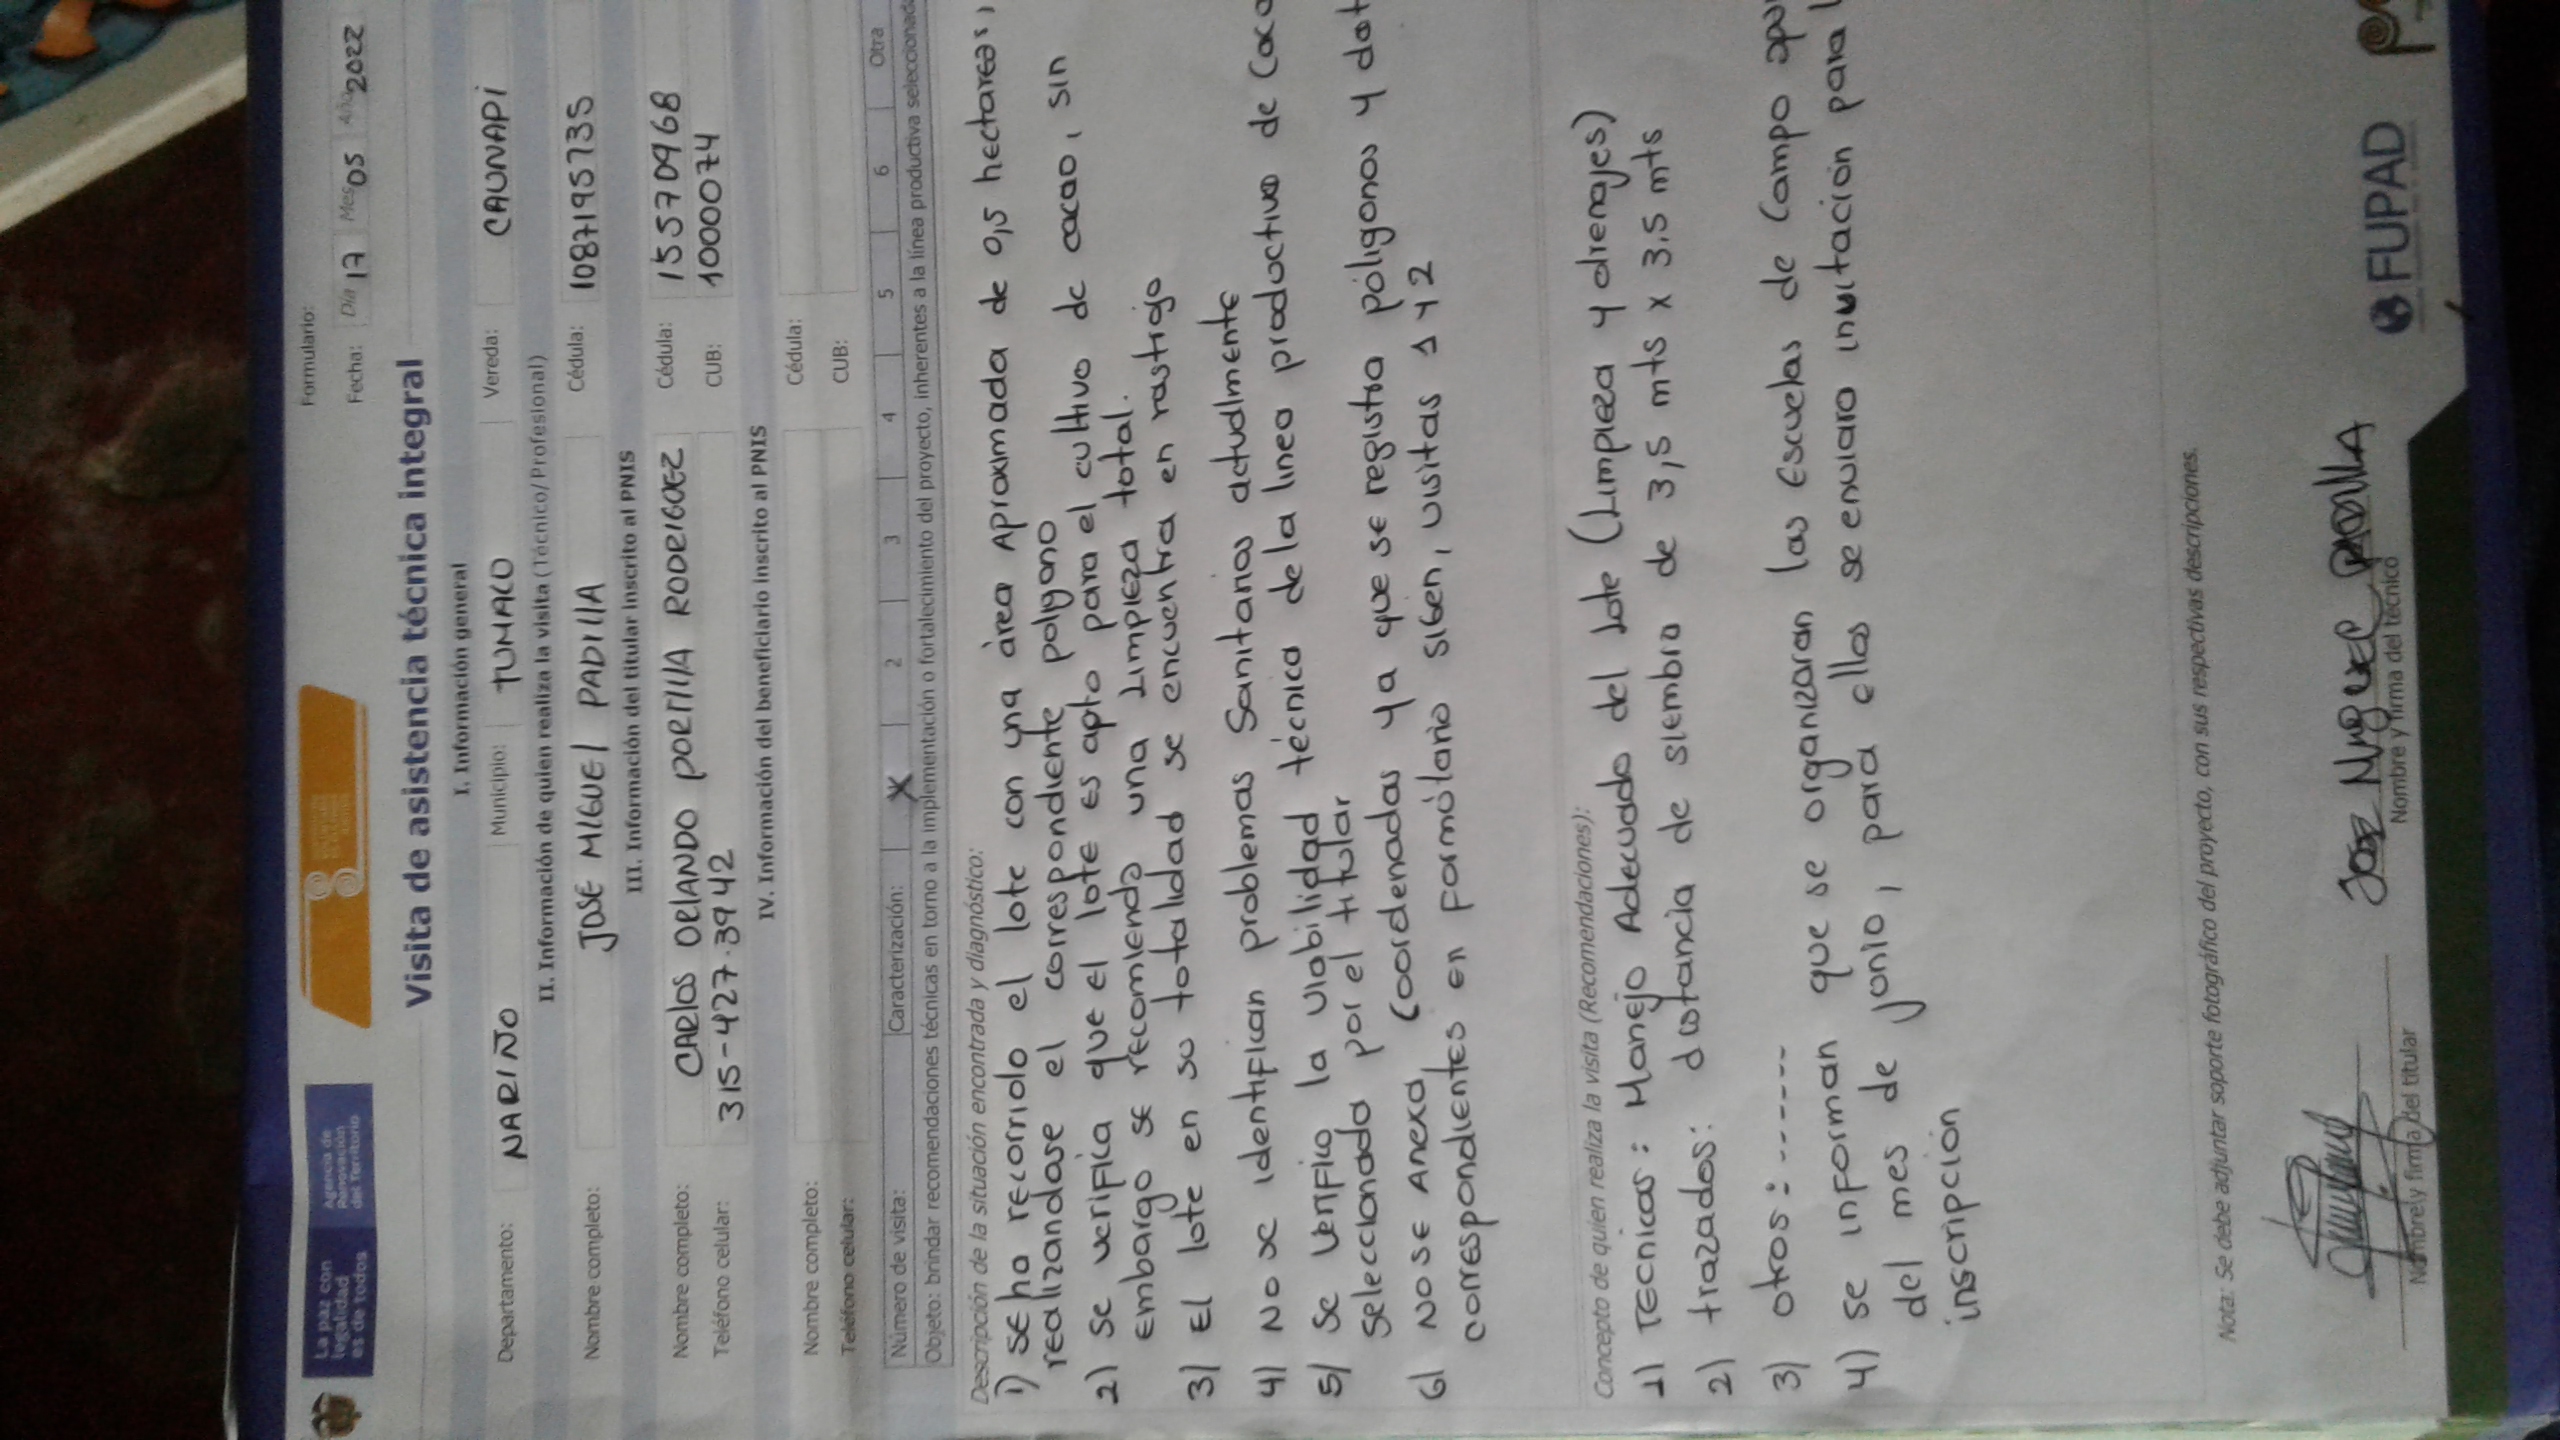 La paz con
legalidad
es de todos
Agencia de
Renovación
del Territorio
Formulario:
Fecha: Día 17 Mes 05 Año 2022
Visita de asistencia técnica integral
I. Información general
Departamento: NARIÑO Municipio: TUMACO Vereda: CAUNAPI
II. Información de quien realiza la visita (Técnico/Profesional)
Nombre completo: JOSE MIGUEL PADILLA Cédula: 1087195735
III. Información del titular inscrito al PNIS
Nombre completo: CARLOS ORLANDO PORTILLA RODRIGUEZ Cédula: 155709968
Teléfono celular: 315-427-3942 CUB: 1000074
IV. Información del beneficiario inscrito al PNIS
Nombre completo: Cédula:
Teléfono celular: CUB:
Número de visita: Caracterización: X 2 3 4 5 6 Otra
Objeto: brindar recomendaciones técnicas en torno a la implementación o fortalecimiento del proyecto, inherentes a la línea productiva seleccionada
Descripción de la situación encontrada y diagnóstico:
1) se ha recorrido el lote con una área Aproximada de 0,5 hectareas,
realizandose el correspondiente poligono
2) se verifica que el lote es apto para el cultivo de cacao, sin
embargo se recomienda una Limpieza total.
3) El lote en su totalidad se encuentra en rastrojo
4) No se identifican problemas Sanitarios actualmente
5) Se Verifico la viabilidad técnica de la linea productiva de Caca
seleccionada por el titular
6) No se Anexa Coordenadas ya que se registra póligonos y dat
correspondientes en formúlario sigen, visitas 1 y 2
Concepto de quien realiza la visita (Recomendaciones):
1) Tecnicas: Manejo Adecuado del Lote (Limpieza y drenajes)
2) trazados: distancia de siembra de 3,5 mts x 3,5 mts
3) otros: ------
4) se informan que se organizaran las Escuelas de Campo apar
del mes de junio, para ellos se enviara invitación para l
inscripcion
Nota: Se debe adjuntar soporte fotográfico del proyecto, con sus respectivas descripciones.
Jose Miguel Padilla
Nombre y firma del titular Nombre y firma del técnico
FUPAD